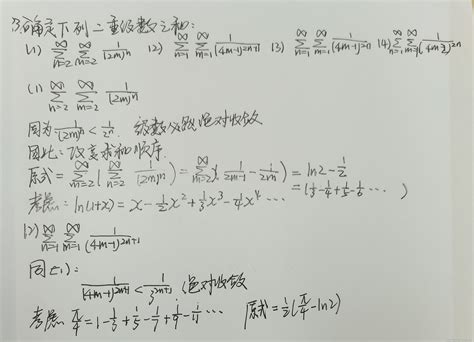 确定下列二重级数之和:
(1) ∞∑n=2 ∞∑m=2 1/(2m)^n (2) ∞∑n=1 ∞∑m=1 1/(4m-1)^{2n+1} (3) ∞∑n=1 ∞∑m=1 1/(4m-1)^{2n} (4) ∞∑n=1 ∞∑m=1 1/(4m-2)^{2n}
(1) ∞∑n=2 ∞∑m=2 1/(2m)^n
因为 1/(2m)^n < 1/2^n, 级数 绝对收敛
因此:改变求和顺序.
原式 = ∞∑m=2 ( ∞∑n=2 1/(2m)^n ) = ∞∑m=2 ( 1/(2m-1) - 1/2m ) = ln2 - 1/2
= (1/3 - 1/4 + 1/5 - 1/6 ⋯ )
考虑: ln(1+x) = x - 1/2 x² + 1/3 x³ - 1/4 x⁴ ⋯
(2) ∞∑n=1 ∞∑m=1 1/(4m-1)^{2n+1}
同(1):
1/(4m-1)^{2n+1} < 1/3^{2n+1} (绝对收敛
考虑 π/4 = 1 - 1/3 + 1/5 - 1/7 + 1/9 - 1/11 ⋯ 原式 = 1/2(π/4 - ln2)